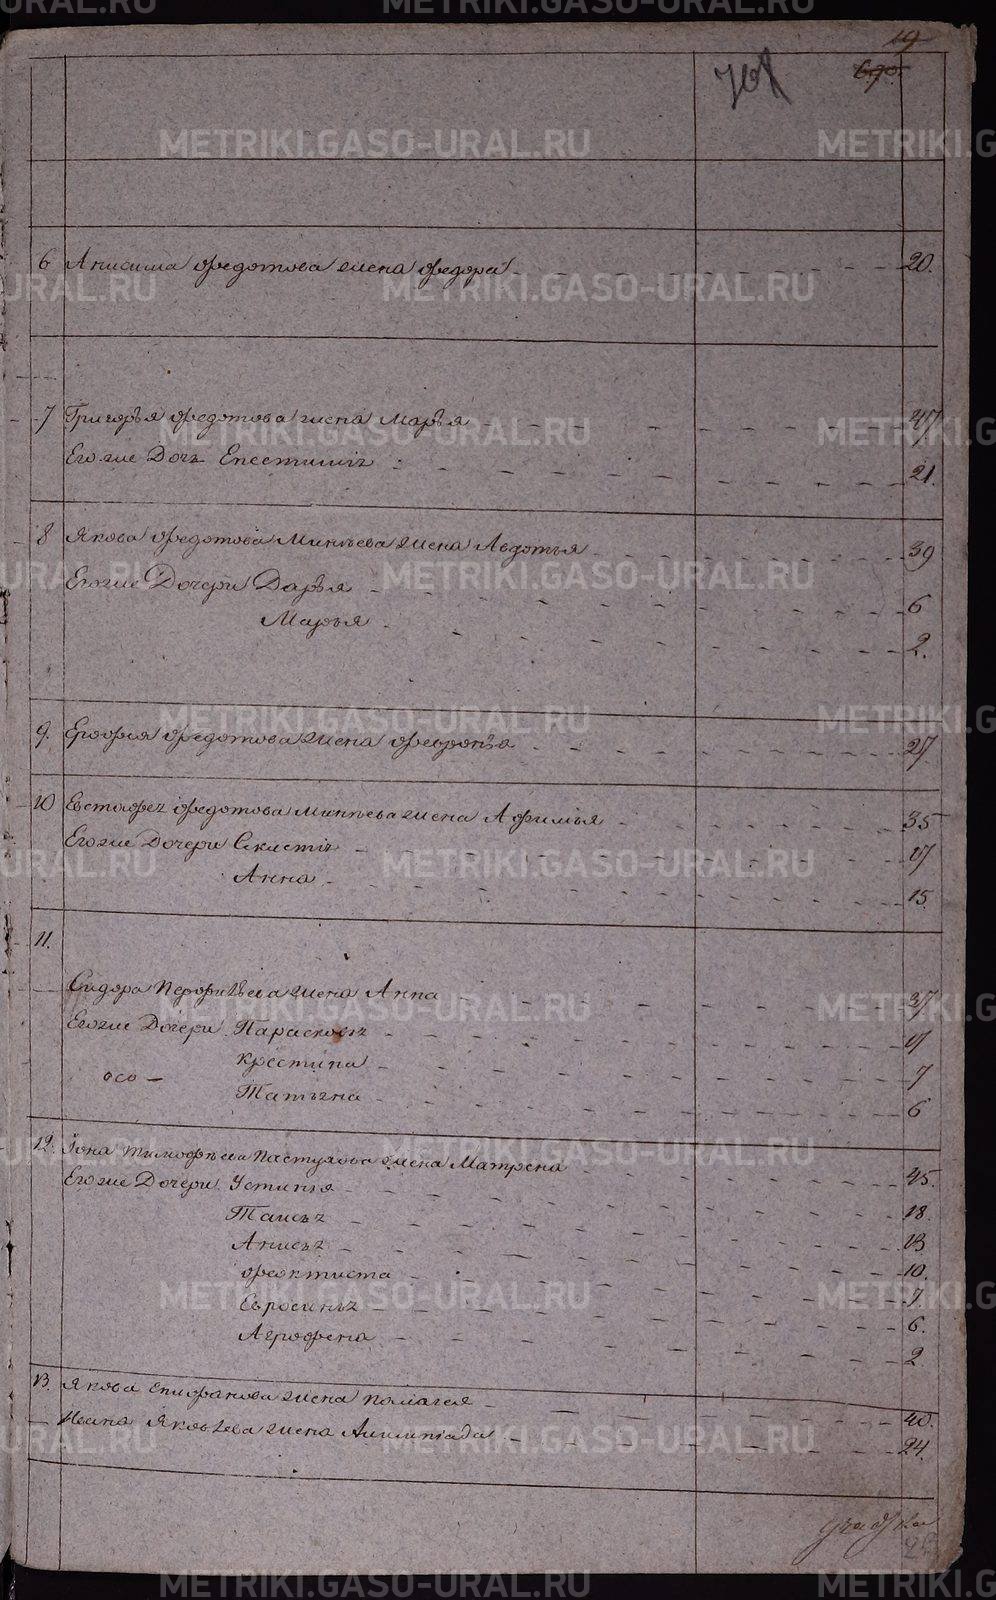 19
701
6 Анисима Федотова жена Федора 20.
7 Григорья Федотова жена Марья 47
Егоже Дочь Епестимия 21.
8 Якова Федотова Минеева жена Авдотья 39
Егоже Дочери Дарья 6
Марья 2.
9. Ерофея Федотова жена Февронья 27.
10 Евстафея Федотова Минеева жена Афимья 35
Егоже Дочери Секлетия 17
Анна 15.
11.
Сидора Перфильева жена Анна 37
Егоже Дочери Парасковья 17
Крестина 7
Татьяна 6
12. Иона Тимофеева Пастухова жена Матрена 45.
Егоже Дочери Устинья 18.
Таисья 13
Анисья 10.
Феоктиста 7.
Евросинья 6.
Агрофена 2
13. Якова Епифанова жена Палагея 40.
Ивана Яковлева жена Алимпиада 24.
METRIKI.GASO-URAL.RU